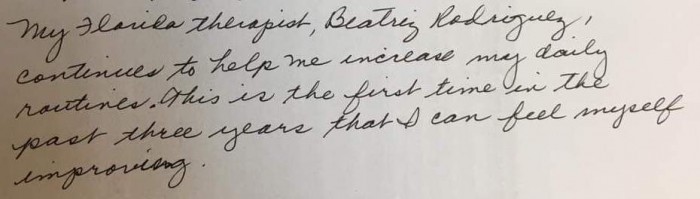 My Florida therapist, Beatriz Rodriguez,
continues to help me increase my daily
routines. This is the first time in the
past three years that I can feel myself
improving.